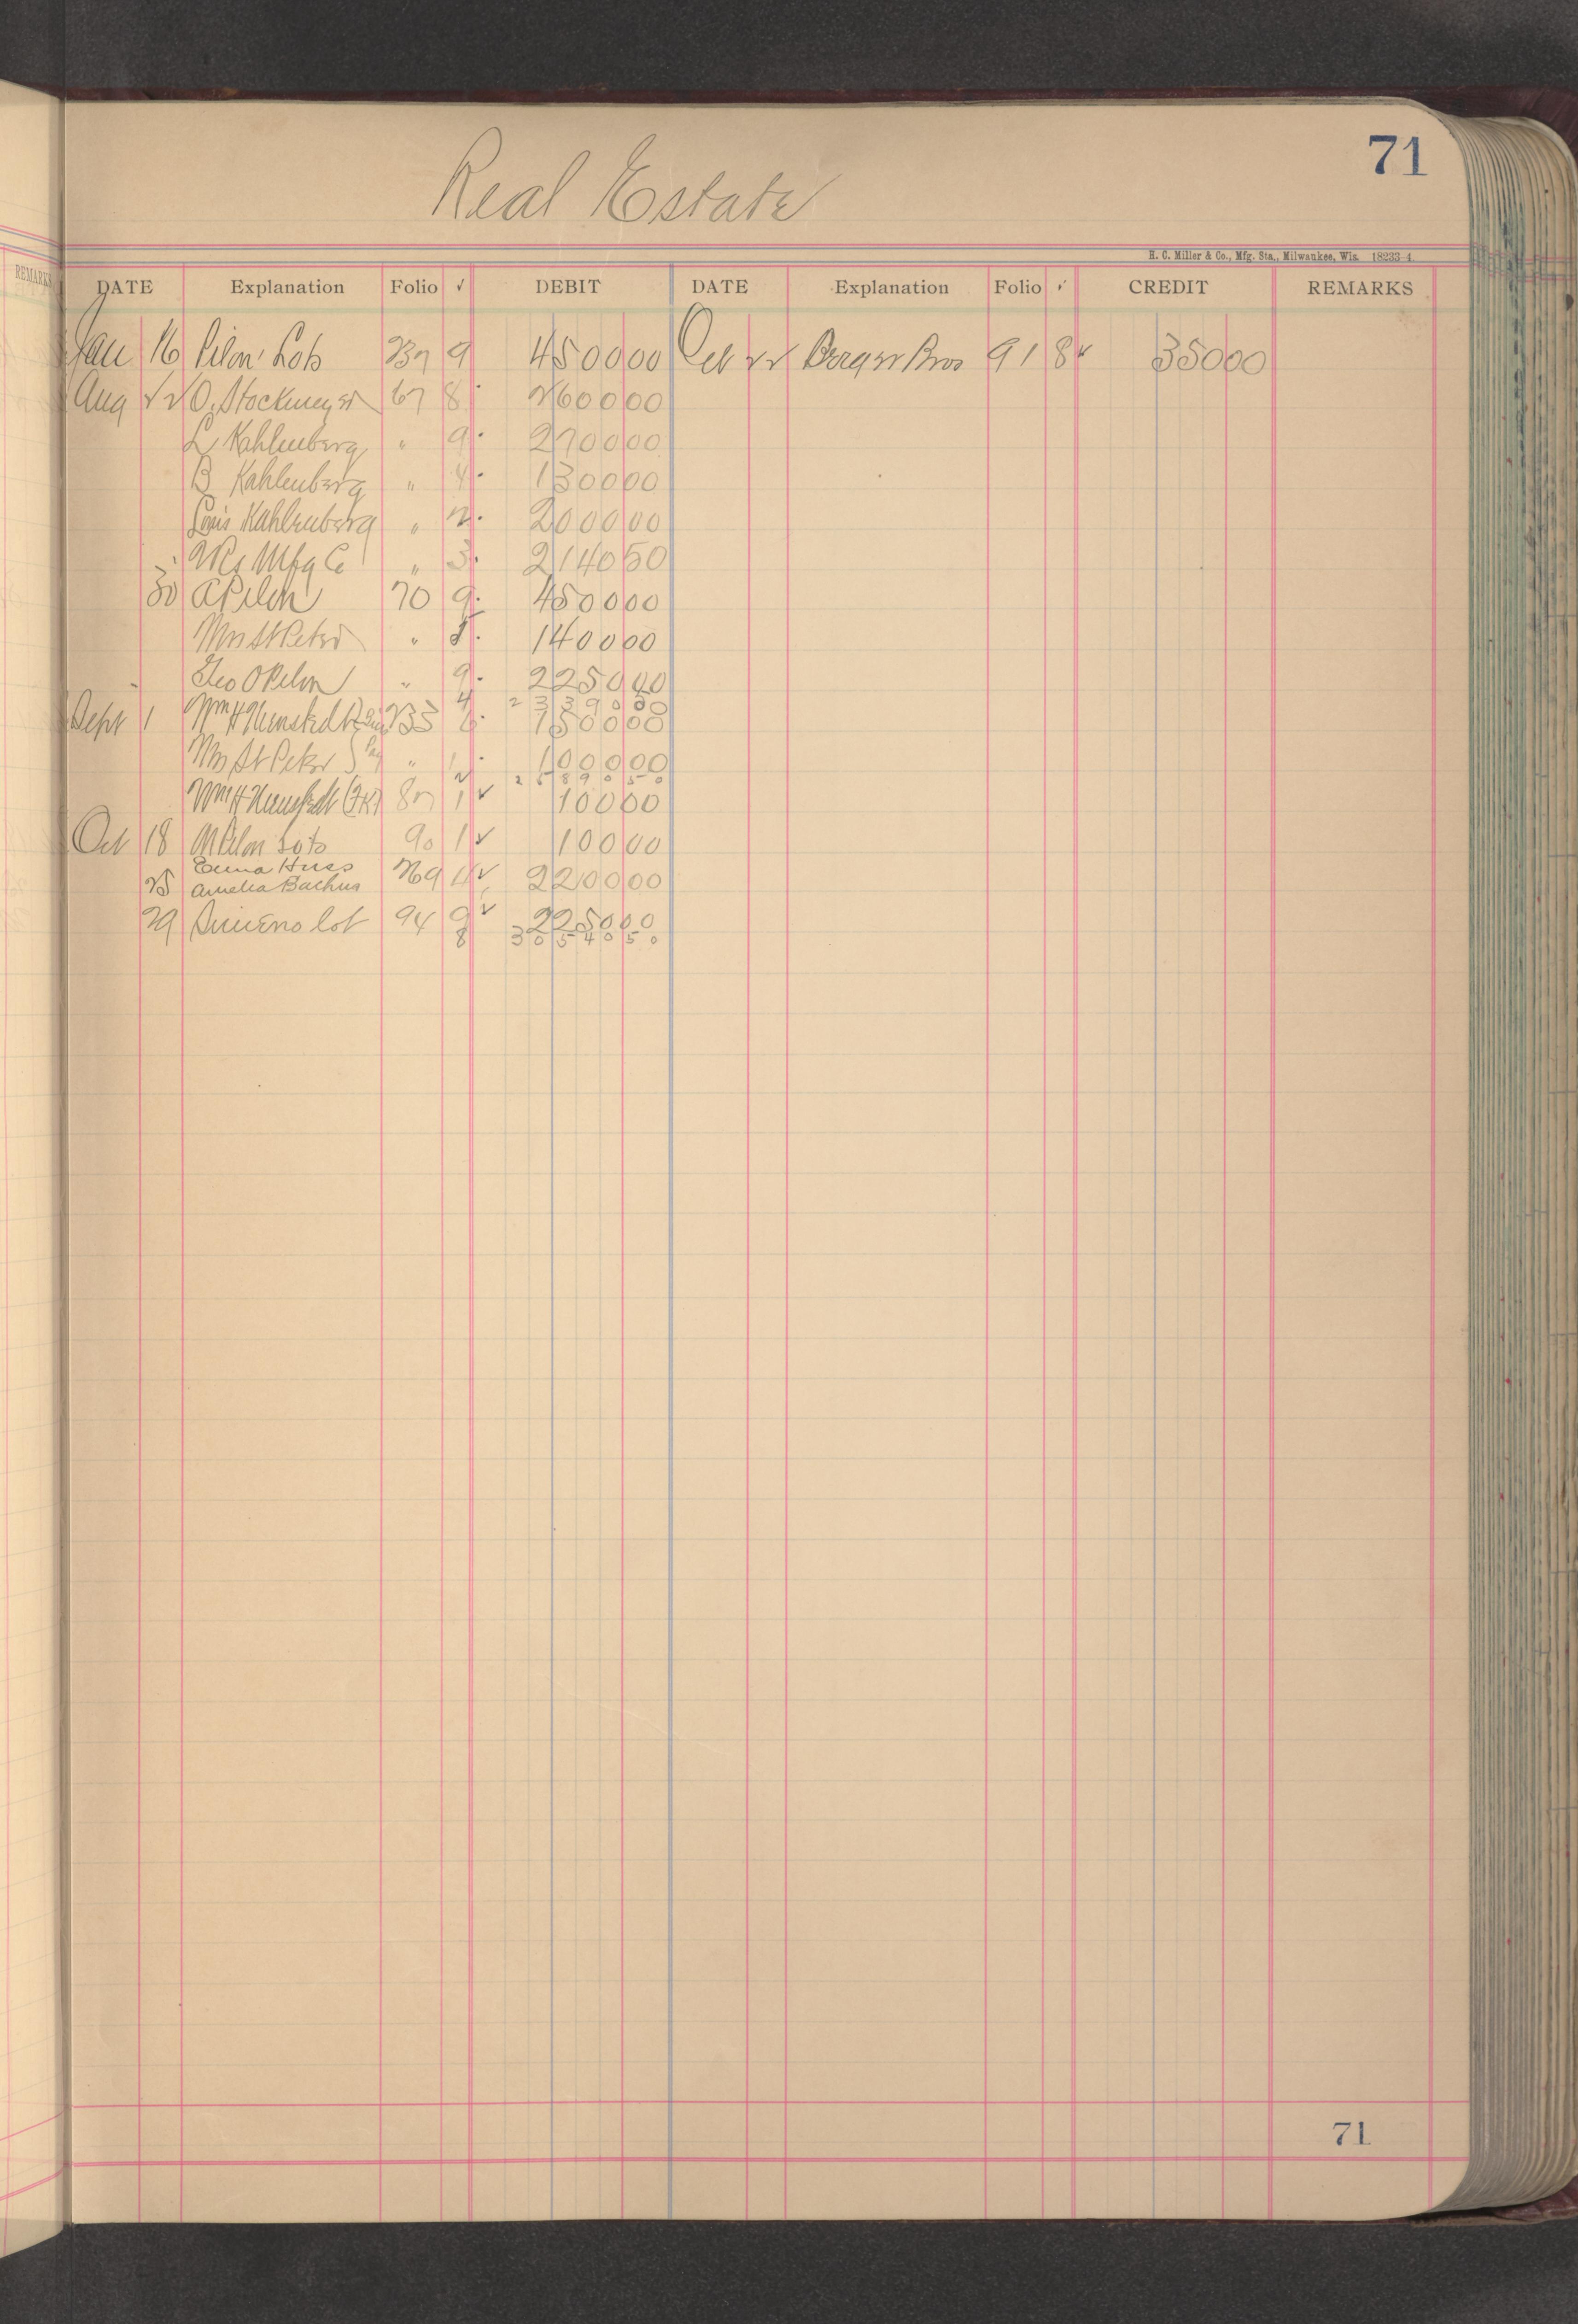 71
Real Estate
H. C. Miller & Co., Mfg. Sta., Milwaukee, Wis. 18233-4
REMARKS
DATE Explanation Folio ✓ DEBIT DATE Explanation Folio ✓ CREDIT REMARKS
Jan 16 Pilon Lots 237 9 4500 00 Oct 22 Berger Bros 91 8 ✓ 350 00
Aug 22 O. Stockmeyer 67 8 2600 00
L Kahlenberg " 9 2700 00
B Kahlenberg " 4 1300 00
Louis Kahlenberg " 2 2000 00
2Rs Mfg Co " 3 2140 50
30 A Pilon 70 9 4500 00
Mrs St Peter " 5 1400 00
Geo O Pilon " 9 2250 00
4 23390 50
Sept 1 Wm H Humstedt 235 6 1500 00
Mrs St Peter " 1 1000 00
2 25890 50
Wm H Humstedt 87 1 ✓ 100 00
Oct 18 M Pilon Lots 90 1 ✓ 100 00
Emma Huss
25 Amelia Bachus 269 4 ✓ 2200 00
29 lot 94 9 ✓ 2250 00
8 30540 50
71